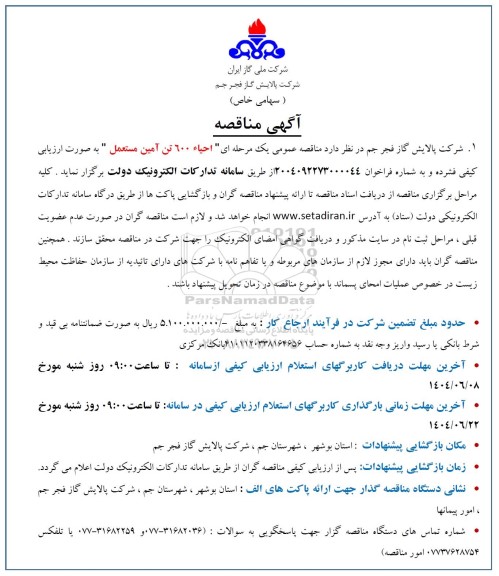 شرکت ملی گاز ایران
شرکت پالایش گاز فجر جم
( سهامی خاص)
آگهی مناقصه
۱. شرکت پالایش گاز فجر جم در نظر دارد مناقصه عمومی یک مرحله ای" احیاء ۶۰۰ تن آمین مستعمل " به صورت ارزیابی
کیفی فشرده و به شماره فراخوان ۲۰۰۴۰۹۲۲۷۳۰۰۰۰۴۴از طریق سامانه تدارکات الکترونیک دولت برگزار نماید . کلیه
مراحل برگزاری مناقصه از دریافت اسناد مناقصه تا ارائه پیشنهاد مناقصه گران و بازگشایی پاکت ها از طریق درگاه سامانه تدارکات
الکترونیکی دولت (ستاد) به آدرس www.setadiran.ir انجام خواهد شد و لازم است مناقصه گران در صورت عدم عضویت
قبلی ، مراحل ثبت نام در سایت مذکور و دریافت گواهی امضای الکترونیک را جهت شرکت در مناقصه محقق سازند . همچنین
مناقصه گران باید دارای مجوز لازم از سازمان های مربوطه و یا تفاهم نامه با شرکت های دارای تائیدیه از سازمان حفاظت محیط
زیست در خصوص عملیات امحای پسماند با موضوع مناقصه در زمان تحویل پیشنهاد باشند .
ParsNamadData
• حدود مبلغ تضمین شرکت در فرآیند ارجاع کار : به مبلغ ‎-/۵.۱۰۰.۰۰۰.۰۰۰ ریال به صورت ضمانتنامه بی قید و
شرط بانکی یا رسید واریز وجه نقد به شماره حساب ۴۱۰۱۱۲۰۳۳۸۱۶۴۶۵۶بانک مرکزی
• آخرین مهلت دریافت کاربرگهای استعلام ارزیابی کیفی ازسامانه : تا ساعت ۰۹:۰۰ روز شنبه مورخ
۱۴۰۴/۰۶/۰۸
• آخرین مهلت زمانی بارگذاری کاربرگهای استعلام ارزیابی کیفی در سامانه: تا ساعت۰۹:۰۰ روز شنبه مورخ
۱۴۰۴/۰۶/۲۲
• مکان بازگشایی پیشنهادات : استان بوشهر ، شهرستان جم ، شرکت پالایش گاز فجر جم
• زمان بازگشایی پیشنهادات: پس از ارزیابی کیفی مناقصه گران از طریق سامانه تدارکات الکترونیک دولت اعلام می گردد.
• نشانی دستگاه مناقصه گذار جهت ارائه پاکت های الف : استان بوشهر ، شهرستان جم ، شرکت پالایش گاز فجر جم
، امور پیمانها
• شماره تماس های دستگاه مناقصه گزار جهت پاسخگویی به سوالات : (۳۱۶۸۲۰۳۶-۰۷۷و ۳۱۶۸۲۲۵۹-۰۷۷ یا تلفکس
۰۷۷۳۷۶۲۸۷۵۴ امور مناقصه)